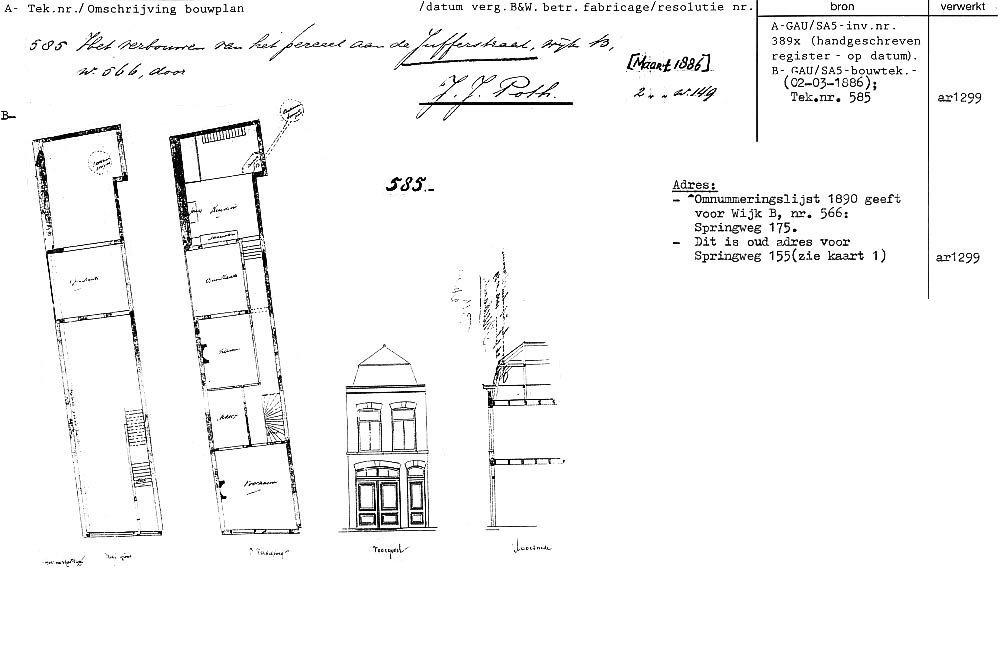 A- Tek.nr./Omschrijving bouwplan /datum verg.B&W. betr. fabricage/resolutie nr. bron verwerkt
585 Het verbouwen van het perceel aan de Jufferstraat, wijk B,
no. 566, door
J. J. Poth.
[Maart 1886]
2 „ „ no. 149
A-GAU/SA5-inv.nr.
389x (handgeschreven
register - op datum).
B- GAU/SA5-bouwtek.-
(02-03-1886);
Tek.nr. 585
ar1299
B-
585.-
Adres:
- Omnummeringslijst 1890 geeft
voor Wijk B, nr. 566:
Springweg 175.
- Dit is oud adres voor
Springweg 155(zie kaart 1)
ar1299
Keuken
Kamer
Voorgevel
Doorsnede